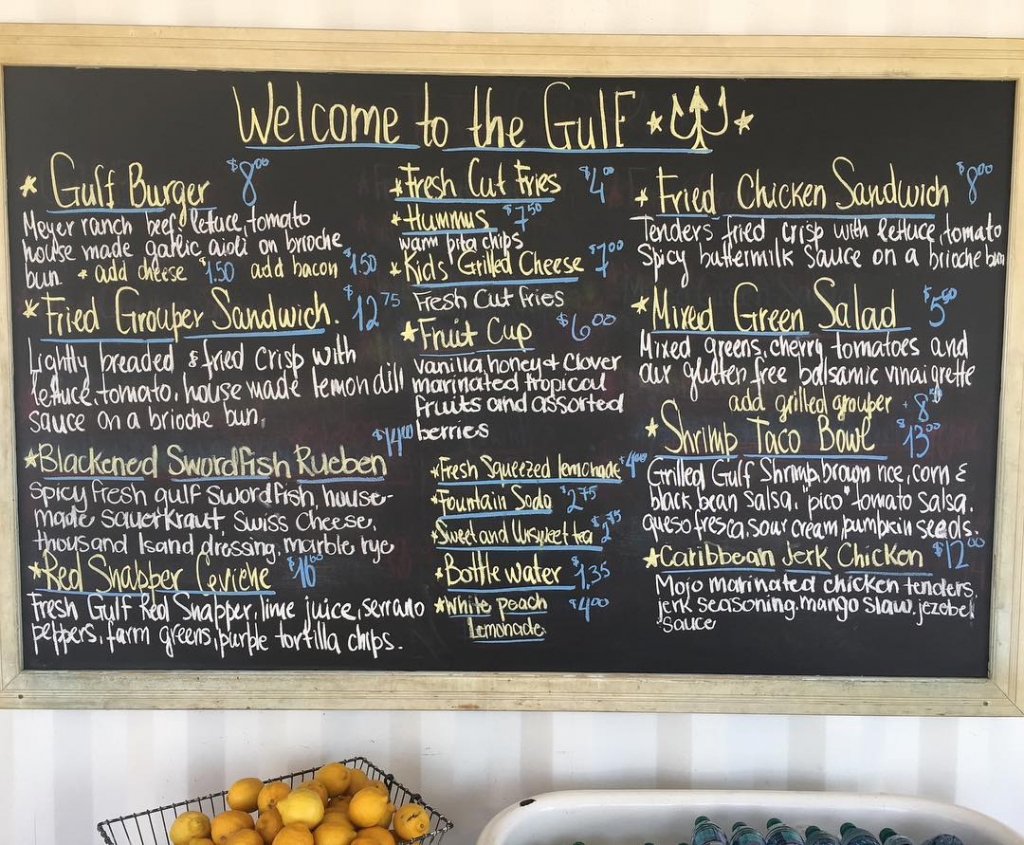 Welcome to the Gulf
Gulf Burger $8.00
Meyer ranch beef, lettuce, tomato
house made garlic aioli on brioche
bun. * add cheese $1.50 add bacon $1.50
Fried Grouper Sandwich. $12.75
Lightly breaded & fried crisp with
lettuce, tomato, house made lemon dill
sauce on a brioche bun.
Blackened Swordfish Rueben $14.00
Spicy fresh gulf swordfish, house-
made sauerkraut, Swiss cheese,
thousand Island dressing, marble rye
Red Snapper Ceviche $16.00
Fresh Gulf Red Snapper, lime juice, serrano
peppers, farm greens, purple tortilla chips.
Fresh Cut Fries $4.00
Hummus $7.50
warm pita chips
Kids Grilled Cheese $7.00
Fresh Cut fries
Fruit Cup $6.00
vanilla, honey & clover
marinated tropical
fruits and assorted
berries
Fresh Squeezed lemonade $4.00
Fountain Soda $2.75
Sweet and Unsweet tea
Bottle Water $1.35
White peach $4.00
Lemonade
Fried Chicken Sandwich $8.00
Tenders fried crisp with lettuce, tomato
Spicy buttermilk sauce on a brioche bun
Mixed Green Salad
Mixed greens, cherry tomatoes and
our gluten free balsamic vinaigrette
add grilled grouper
Shrimp Taco Bowl $13.00
Grilled Gulf Shrimp, brown rice, corn &
black bean salsa, "pico" tomato salsa,
queso fresca, sour cream, pumpkin seeds.
Caribbean Jerk Chicken $12.00
Mojo marinated chicken tenders,
jerk seasoning, mango slaw, jezebel
sauce